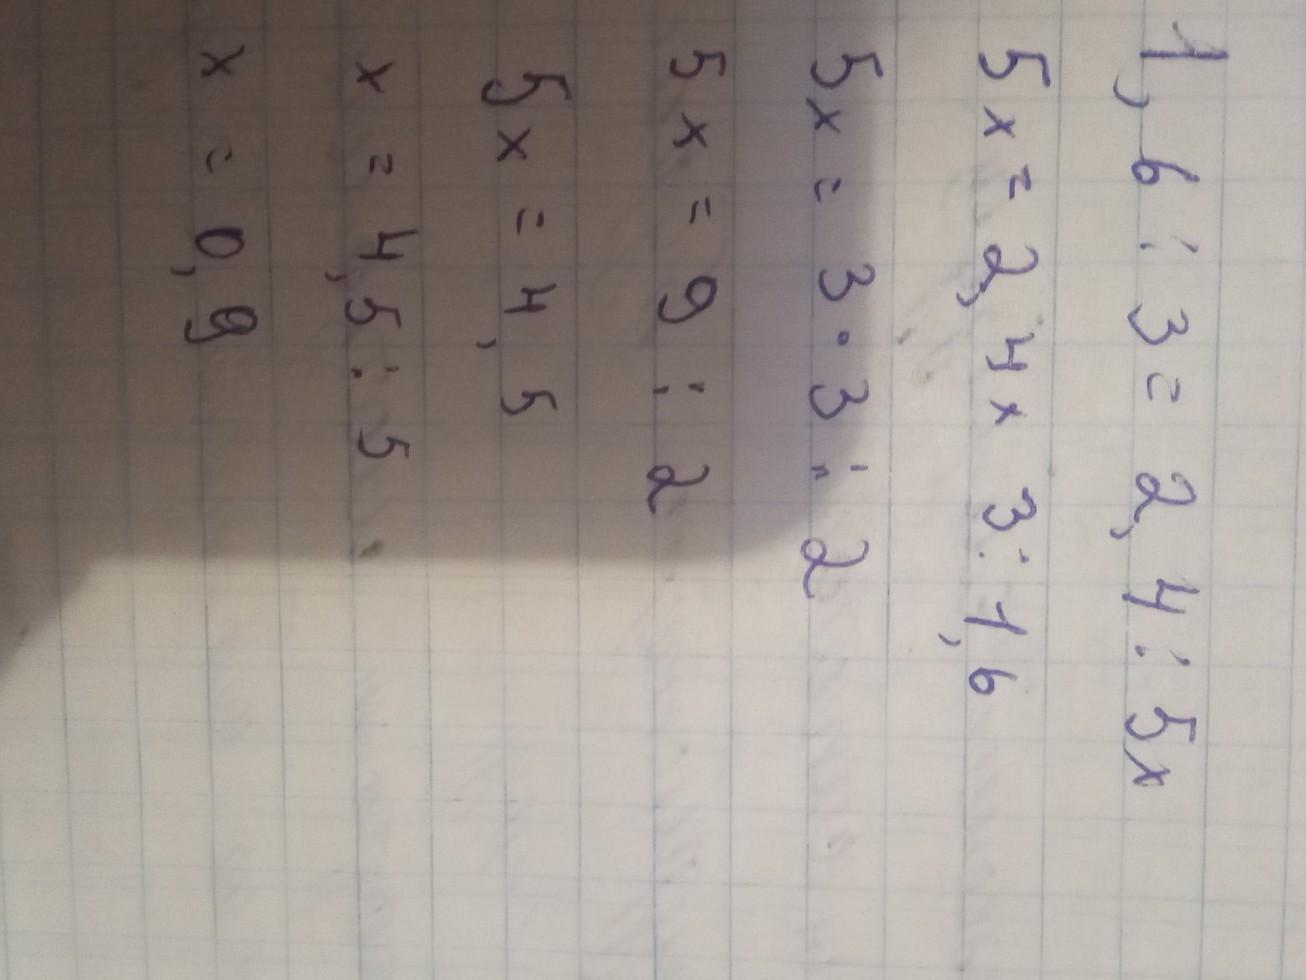 1,6 : 3 = 2,4 : 5x
5x = 2,4 x 3 : 1,6
5x = 3 · 3 : 2
5x = 9 : 2
5x = 4,5
x = 4,5 : 5
x = 0,9